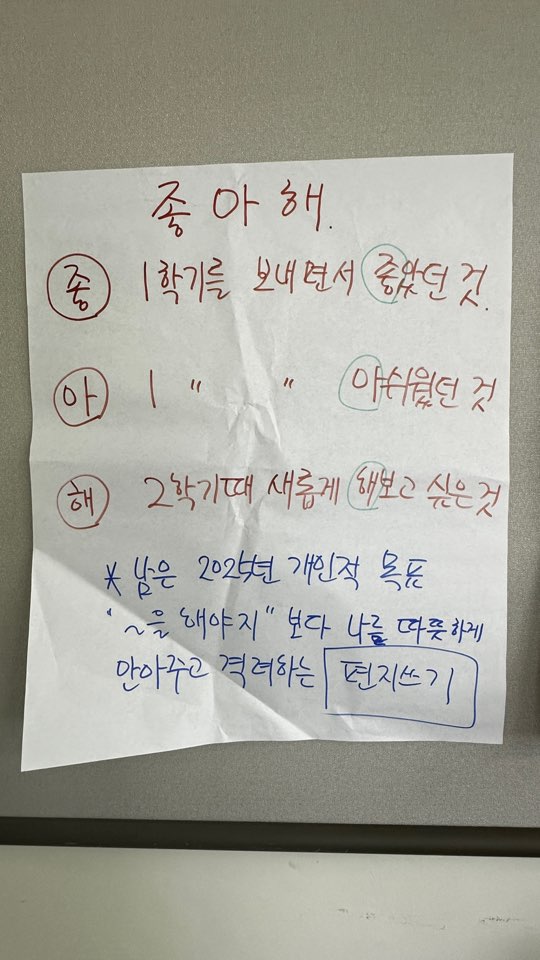 좋아해.
좋 1학기를 보내면서 좋았던 것.
아 1 " " 아쉬웠던 것
해 2학기때 새롭게 해보고 싶은것
* 남은 2025년 개인적 목표
"~을 해야지" 보다 나를 따뜻하게
안아주고 격려하는 편지쓰기